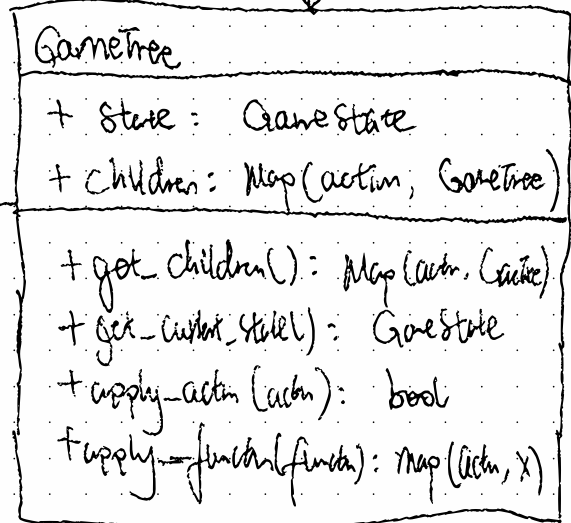 GameTree
+ state: GameState
+ children: Map(action, GameTree)
+ get_children(): Map(actn, GameTree)
+ get_current_state(): GameState
+ apply_actn(actn): bool
+ apply_functn(functn): map(actn, X)